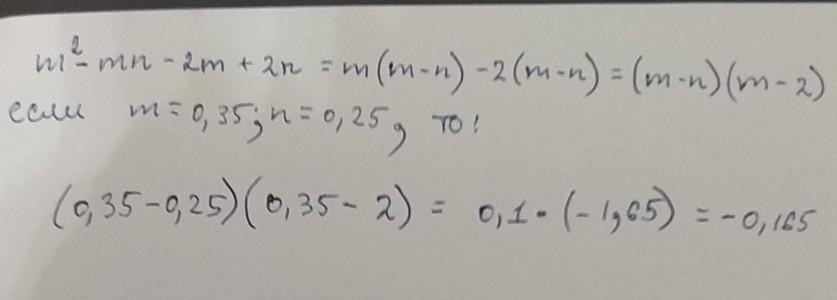 m² - mn - 2m + 2n = m(m-n) - 2(m-n) = (m-n)(m-2)
если m = 0,35; n = 0,25, то:
(0,35-0,25)(0,35-2) = 0,1 · (-1,65) = -0,165